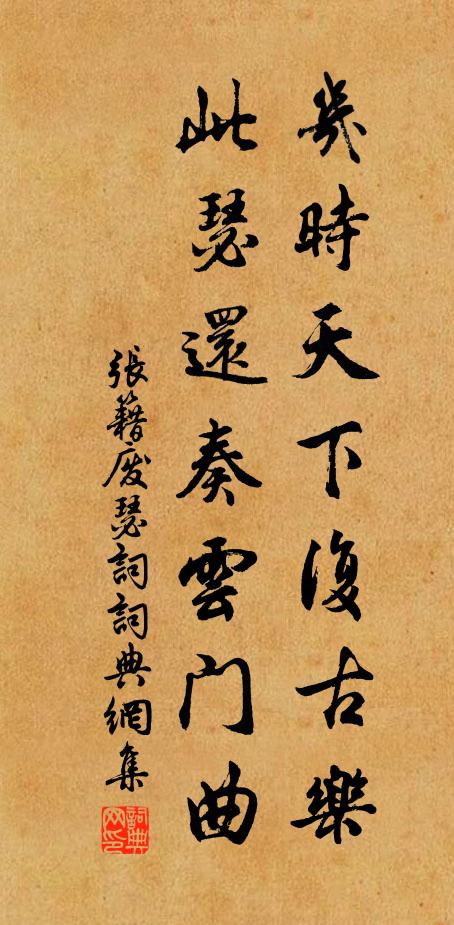 幾時天下復古樂
此瑟還奏雲門曲
張籍廢瑟詞詞典網集
詞典网印